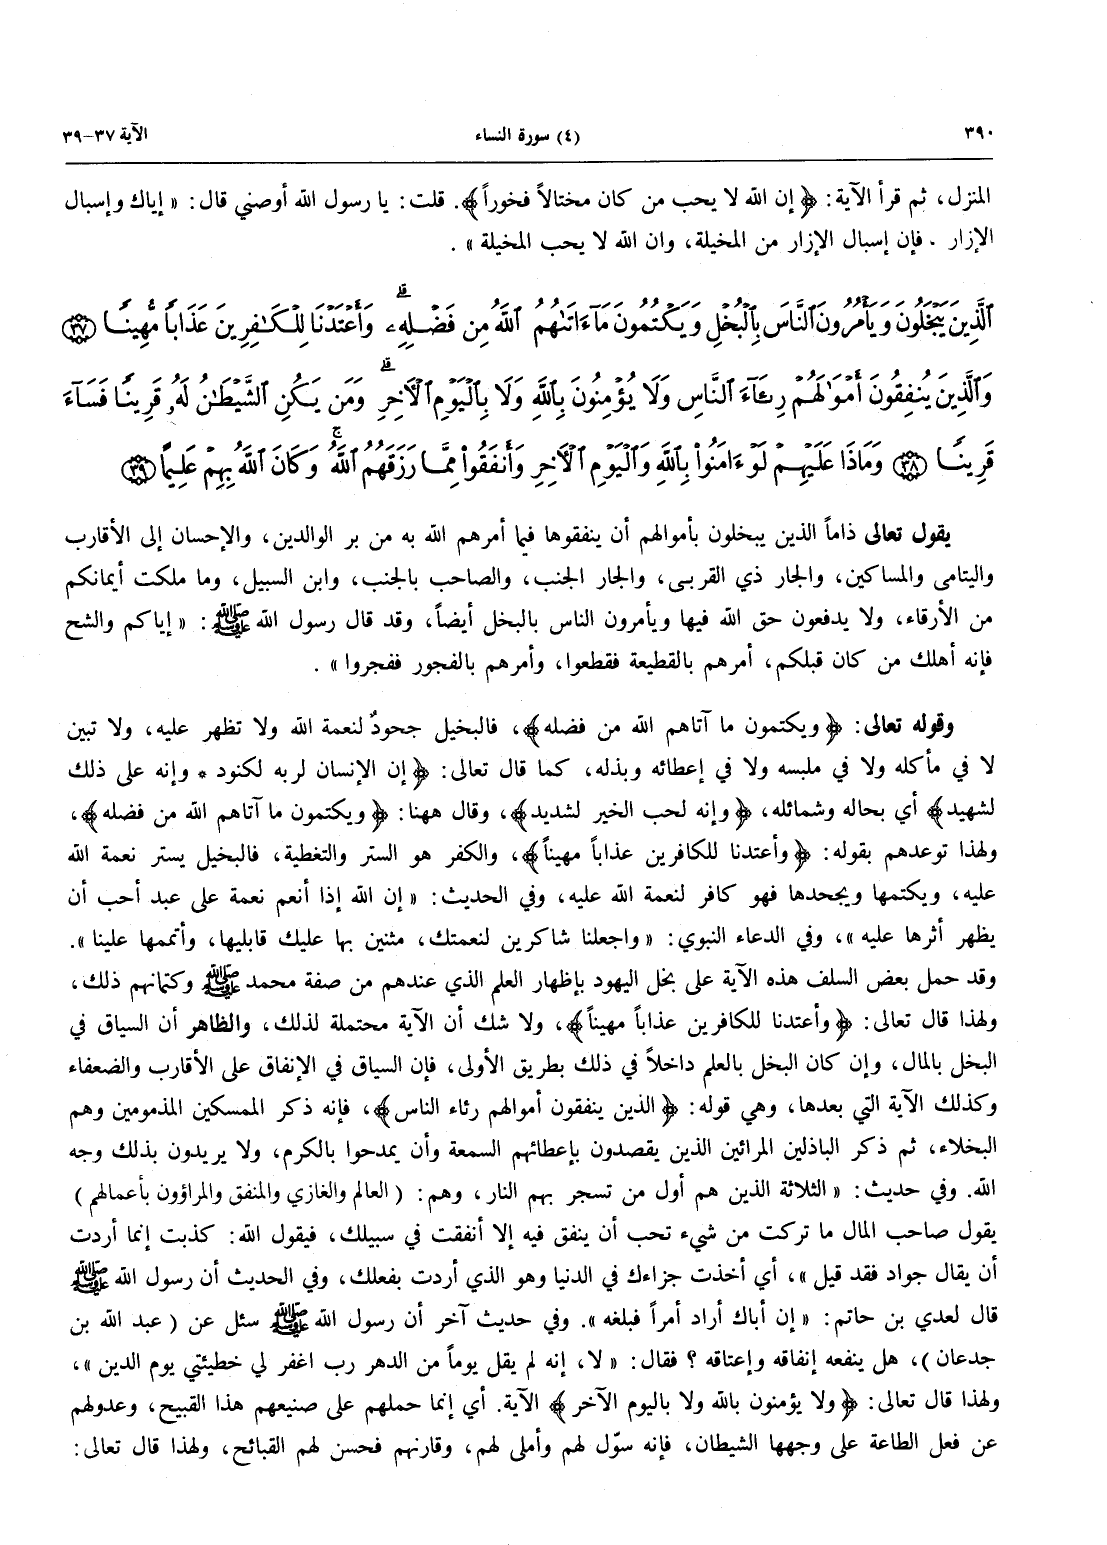 ٣٩٠ (٤) سورة النساء الآية ٣٧-٣٩
المنزل، ثم قرأ الآية: ﴿إن الله لا يحب من كان مختالاً فخوراً﴾. قلت: يا رسول الله أوصني قال: « إياك وإسبال
الإزار . فإن إسبال الإزار من المخيلة، وان الله لا يحب المخيلة » .
ٱلَّذِينَ يَبۡخَلُونَ وَيَأۡمُرُونَ ٱلنَّاسَ بِٱلۡبُخۡلِ وَيَكۡتُمُونَ مَآ ءَاتَىٰهُمُ ٱللَّهُ مِن فَضۡلِهِۦۗ وَأَعۡتَدۡنَا لِلۡكَٰفِرِينَ عَذَابٗا مُّهِينٗا ٣٧
وَٱلَّذِينَ يُنفِقُونَ أَمۡوَٰلَهُمۡ رِئَآءَ ٱلنَّاسِ وَلَا يُؤۡمِنُونَ بِٱللَّهِ وَلَا بِٱلۡيَوۡمِ ٱلۡأٓخِرِۗ وَمَن يَكُنِ ٱلشَّيۡطَٰنُ لَهُۥ قَرِينٗا فَسَآءَ
قَرِينٗا ٣٨ وَمَاذَا عَلَيۡهِمۡ لَوۡ ءَامَنُواْ بِٱللَّهِ وَٱلۡيَوۡمِ ٱلۡأٓخِرِ وَأَنفَقُواْ مِمَّا رَزَقَهُمُ ٱللَّهُۚ وَكَانَ ٱللَّهُ بِهِمۡ عَلِيمًا ٣٩
يقول تعالى ذاماً الذين يبخلون بأموالهم أن ينفقوها فيما أمرهم الله به من بر الوالدين، والإحسان إلى الأقارب
واليتامى والمساكين، والجار ذي القربى، والجار الجنب، والصاحب بالجنب، وابن السبيل، وما ملكت أيمانكم
من الأرقاء، ولا يدفعون حق الله فيها ويأمرون الناس بالبخل أيضاً، وقد قال رسول الله ﷺ: « إياكم والشح
فإنه أهلك من كان قبلكم، أمرهم بالقطيعة فقطعوا، وأمرهم بالفجور ففجروا » .
وقوله تعالى: ﴿ويكتمون ما آتاهم الله من فضله﴾، فالبخيل جحودٌ لنعمة الله ولا تظهر عليه، ولا تبين
لا في مأكله ولا في ملبسه ولا في إعطائه وبذله، كما قال تعالى: ﴿إن الإنسان لربه لكنود * وإنه على ذلك
لشهيد﴾ أي بحاله وشمائله، ﴿وإنه لحب الخير لشديد﴾، وقال ههنا: ﴿ويكتمون ما آتاهم الله من فضله﴾،
ولهذا توعدهم بقوله: ﴿وأعتدنا للكافرين عذاباً مهيناً﴾، والكفر هو الستر والتغطية، فالبخيل يستر نعمة الله
عليه، ويكتمها ويجحدها فهو كافر لنعمة الله عليه، وفي الحديث: « إن الله إذا أنعم نعمة على عبد أحب أن
يظهر أثرها عليه »، وفي الدعاء النبوي: « واجعلنا شاكرين لنعمتك، مثنين بها عليك قابليها، وأتممها علينا ».
وقد حمل بعض السلف هذه الآية على بخل اليهود بإظهار العلم الذي عندهم من صفة محمد ﷺ وكتمانهم ذلك،
ولهذا قال تعالى: ﴿وأعتدنا للكافرين عذاباً مهيناً﴾، ولا شك أن الآية محتملة لذلك، والظاهر أن السياق في
البخل بالمال، وإن كان البخل بالعلم داخلاً في ذلك بطريق الأولى، فإن السياق في الإنفاق على الأقارب والضعفاء
وكذلك الآية التي بعدها، وهي قوله: ﴿الذين ينفقون أموالهم رئاء الناس﴾، فإنه ذكر الممسكين المذمومين وهم
البخلاء، ثم ذكر الباذلين المرائين الذين يقصدون بإعطائهم السمعة وأن يمدحوا بالكرم، ولا يريدون بذلك وجه
الله. وفي حديث: « الثلاثة الذين هم أول من تسجر بهم النار، وهم: ( العالم والغازي والمنفق والمراؤون بأعمالهم )
يقول صاحب المال ما تركت من شيء تحب أن ينفق فيه إلا أنفقت في سبيلك، فيقول الله: كذبت إنما أردت
أن يقال جواد فقد قيل »، أي أخذت جزاءك في الدنيا وهو الذي أردت بفعلك، وفي الحديث أن رسول الله ﷺ
قال لعدي بن حاتم: « إن أباك أراد أمراً فبلغه ». وفي حديث آخر أن رسول الله ﷺ سئل عن ( عبد الله بن
جدعان )، هل ينفعه إنفاقه وإعتاقه ؟ فقال: « لا، إنه لم يقل يوماً من الدهر رب اغفر لي خطيئتي يوم الدين »،
ولهذا قال تعالى: ﴿ولا يؤمنون بالله ولا باليوم الآخر﴾ الآية. أي إنما حملهم على صنيعهم هذا القبيح، وعدولهم
عن فعل الطاعة على وجهها الشيطان، فإنه سوّل لهم وأملى لهم، وقارنهم فحسن لهم القبائح، ولهذا قال تعالى: